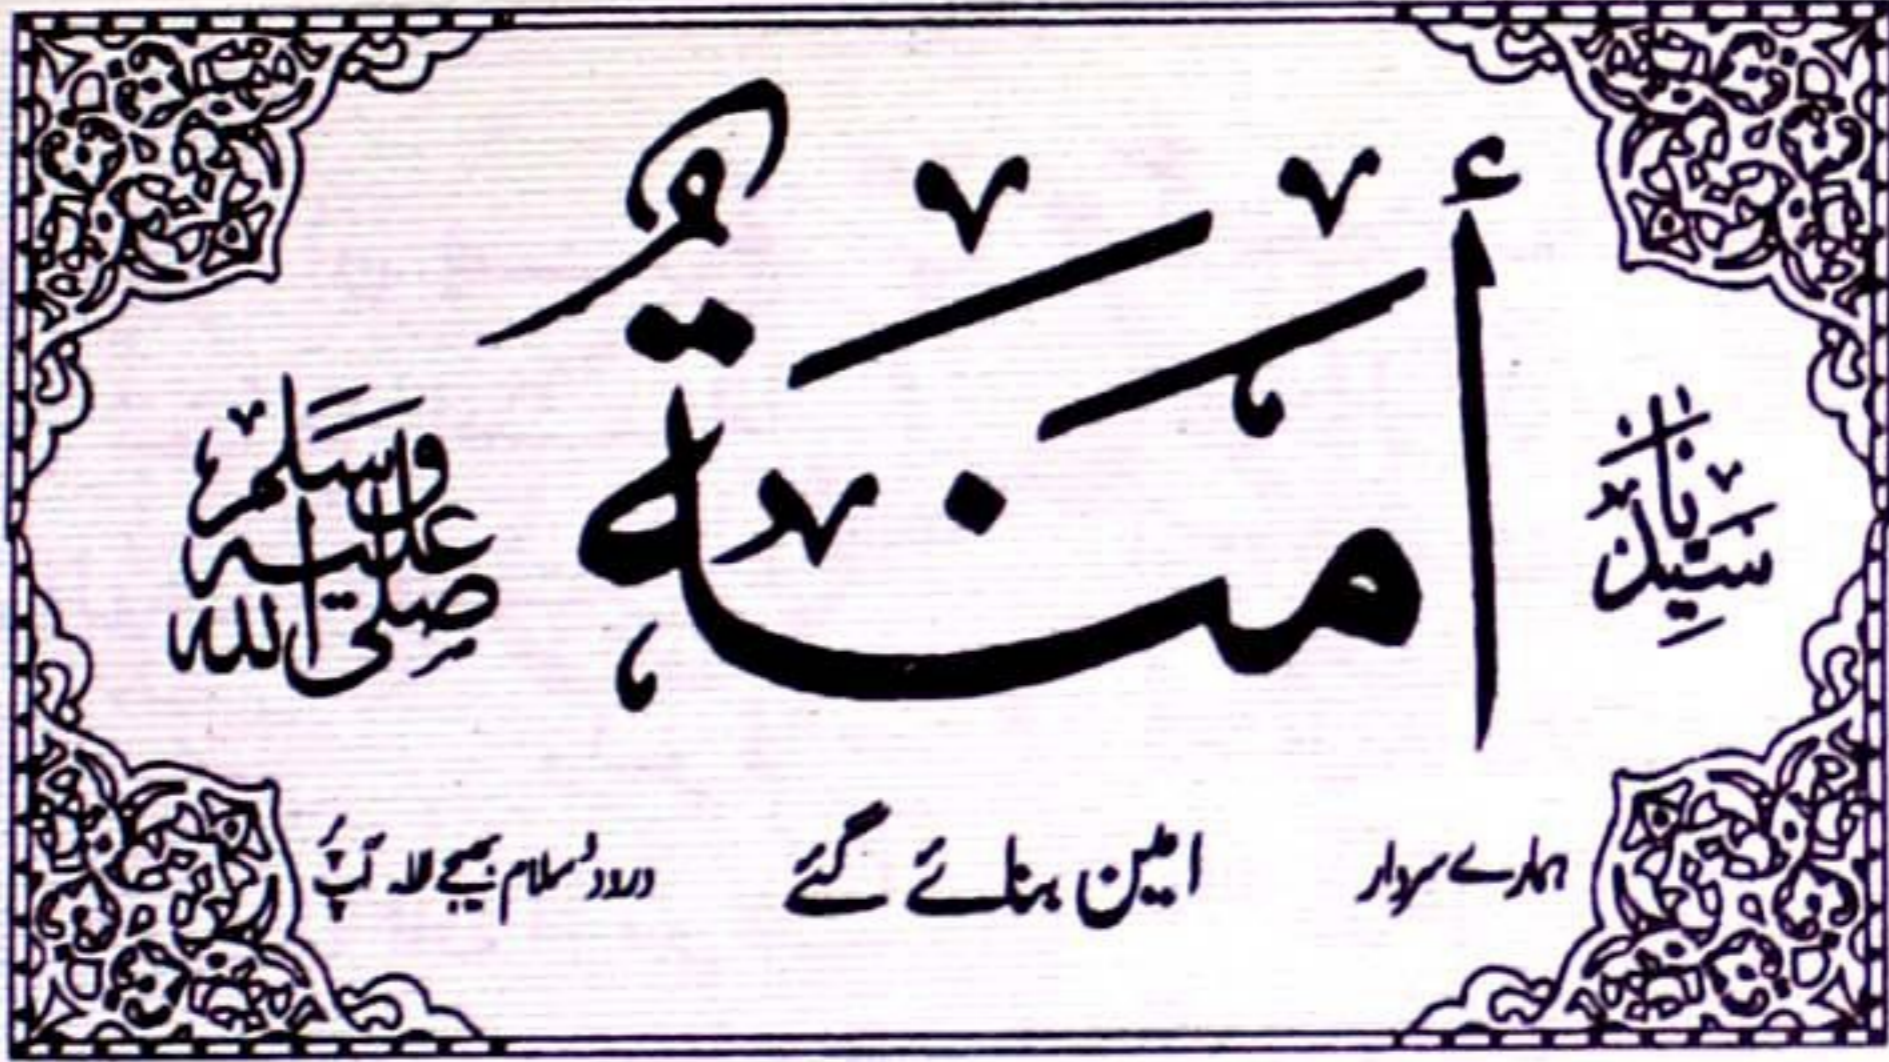 سَيِّدُنَا أَمَنَةٌ صَلَّى اللہ عَلَيْهِ وَسَلَّمَ
ہمارے سردار امین بنائے گئے درود و سلام بھیجے اللہ آپؐ پر